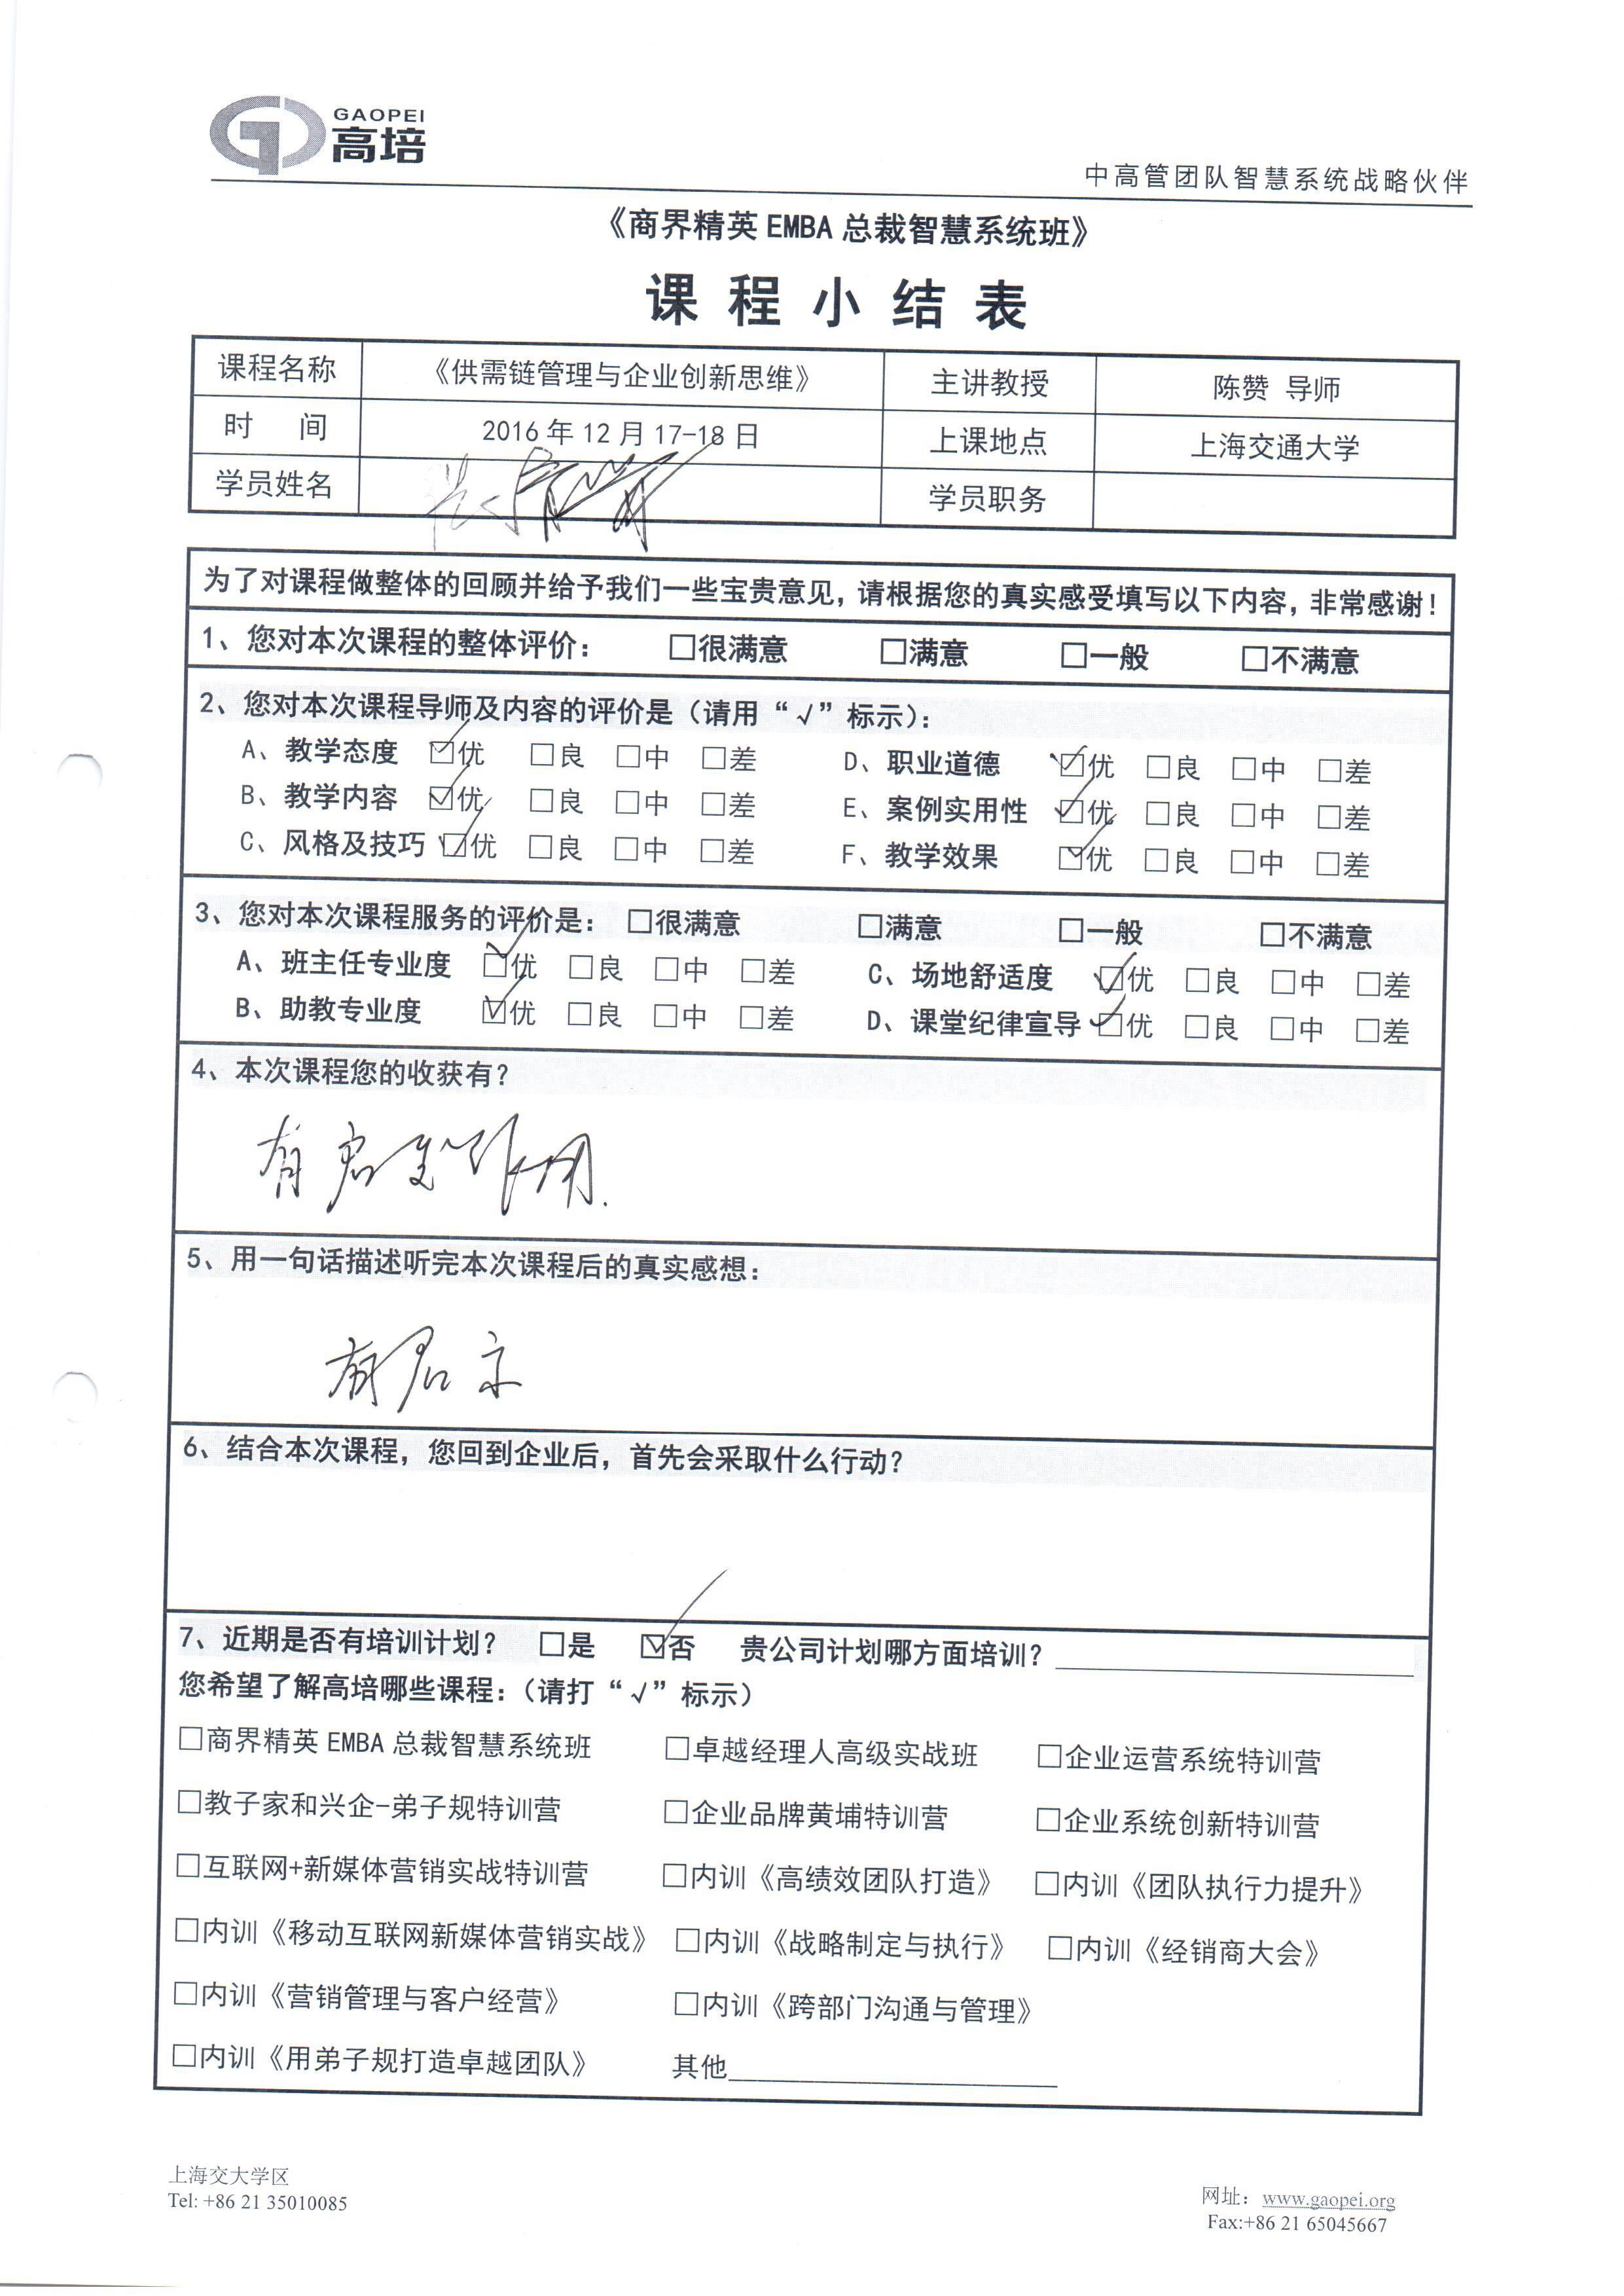 GAOPEI
高培
中高管团队智慧系统战略伙伴
《商界精英 EMBA 总裁智慧系统班》
课程小结表
课程名称 《供需链管理与企业创新思维》 主讲教授 陈赞 导师
时 间 2016 年 12 月 17-18 日 上课地点 上海交通大学
学员姓名 学员职务
为了对课程做整体的回顾并给予我们一些宝贵意见，请根据您的真实感受填写以下内容，非常感谢！
1、您对本次课程的整体评价： □很满意 □满意 □一般 □不满意
2、您对本次课程导师及内容的评价是（请用“√”标示）：
A、教学态度 ☑优 □良 □中 □差 D、职业道德 ☑优 □良 □中 □差
B、教学内容 ☑优 □良 □中 □差 E、案例实用性 ☑优 □良 □中 □差
C、风格及技巧 ☑优 □良 □中 □差 F、教学效果 ☑优 □良 □中 □差
3、您对本次课程服务的评价是： □很满意 □满意 □一般 □不满意
A、班主任专业度 ☑优 □良 □中 □差 C、场地舒适度 ☑优 □良 □中 □差
B、助教专业度 ☑优 □良 □中 □差 D、课堂纪律宣导 ☑优 □良 □中 □差
4、本次课程您的收获有？
有启发作用.
5、用一句话描述听完本次课程后的真实感想：
有启示
6、结合本次课程，您回到企业后，首先会采取什么行动？
7、近期是否有培训计划？ □是 ☑否 贵公司计划哪方面培训？
您希望了解高培哪些课程：（请打“√”标示）
□商界精英 EMBA 总裁智慧系统班 □卓越经理人高级实战班 □企业运营系统特训营
□教子家和兴企-弟子规特训营 □企业品牌黄埔特训营 □企业系统创新特训营
□互联网+新媒体营销实战特训营 □内训《高绩效团队打造》 □内训《团队执行力提升》
□内训《移动互联网新媒体营销实战》 □内训《战略制定与执行》 □内训《经销商大会》
□内训《营销管理与客户经营》 □内训《跨部门沟通与管理》
□内训《用弟子规打造卓越团队》 其他
上海交大学区
Tel: +86 21 35010085
网址： www.gaopei.org
Fax:+86 21 65045667